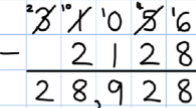 ²3 ¹⁰1 ¹0 ⁴5 ¹6
− 2 1 2 8
2 8,9 2 8